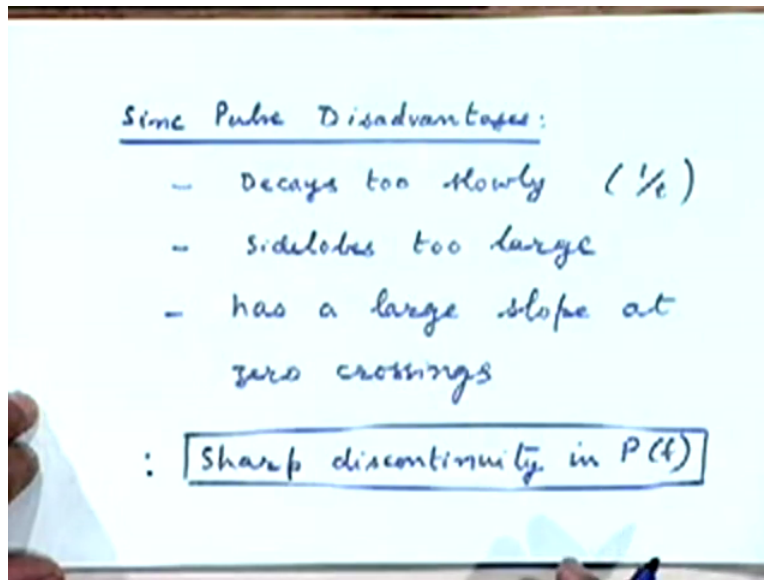 Sinc Pulse Disadvantages:
- Decays too slowly (1/t)
- Sidelobes too large
- has a large slope at
zero crossings
: Sharp discontinuity in P(f)